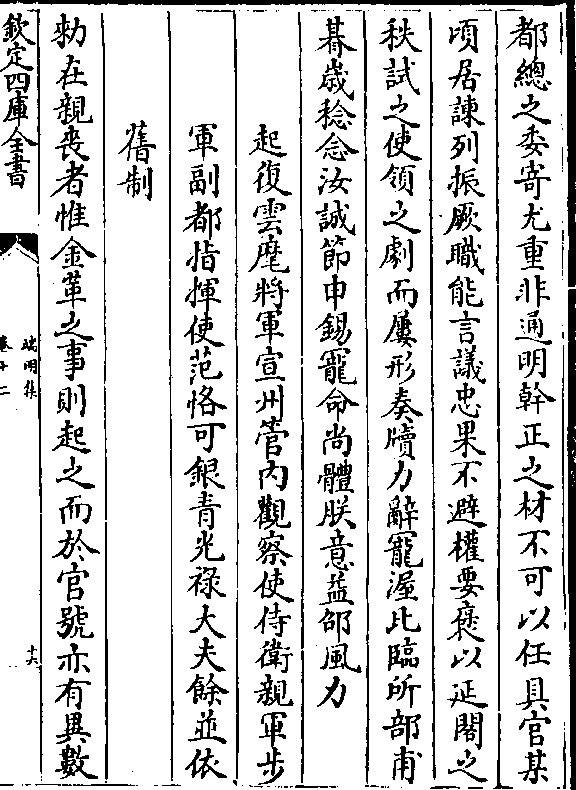 都總之委寄尤重非通明幹正之材不可以任具官某
頃居諫列振厥職能言議忠果不避權要褒以延閣之
秩試之使領之劇而屢形奏牘力辭寵渥比臨所部甫
朞歳稔念汝誠節申錫寵命尚體朕意益邵風力
起復雲麾將軍宣州管内觀察使侍衛親軍步
軍副都指揮使范恪可銀青光禄大夫餘並依
舊制
勑在親喪者惟金革之事則起之而於官號亦有異數
欽定四庫全書
端明集
卷十二
十六